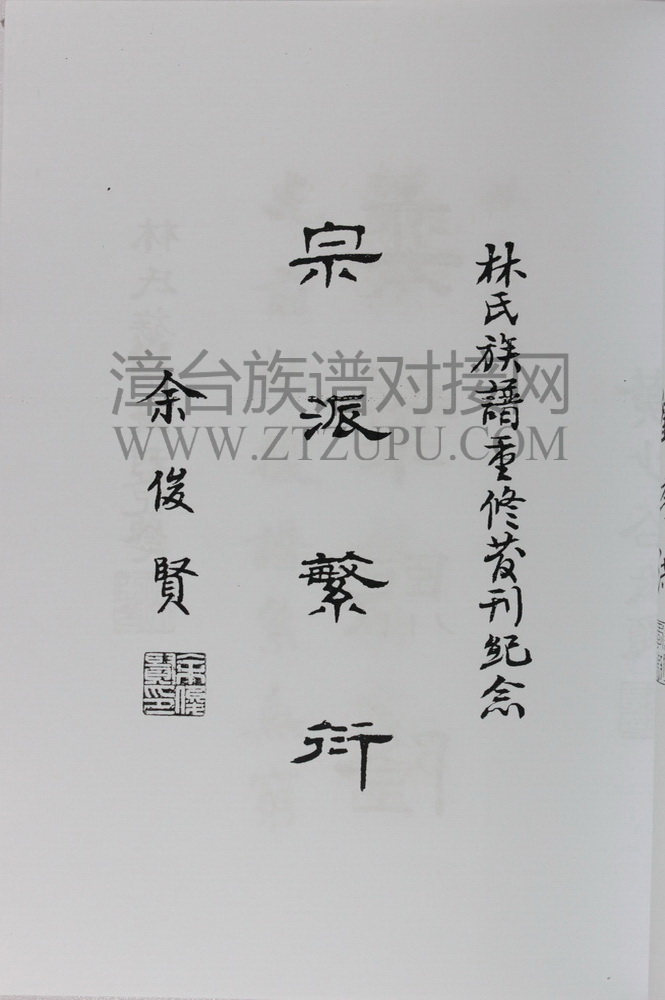 林氏族譜重修发刊紀念
宗派繁衍
余俊賢
余俊賢印
漳台族谱对接网
WWW.ZTZUPU.COM